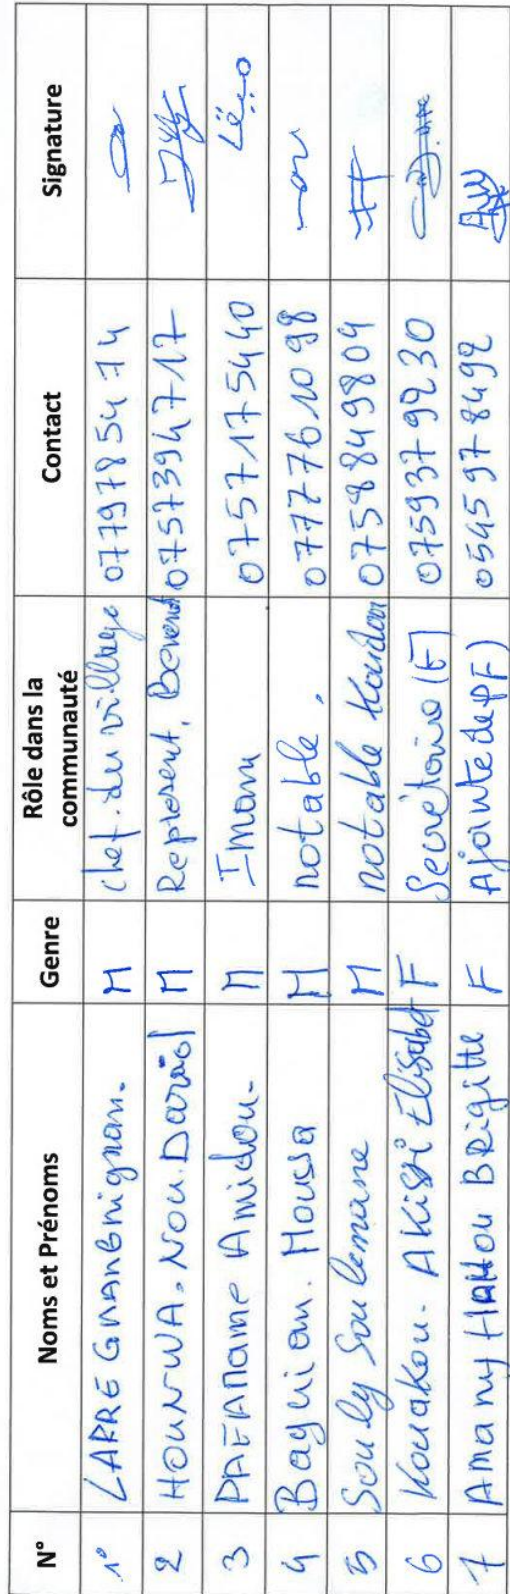 N° Noms et Prénoms Genre Rôle dans la communauté Contact Signature
1° LARRE GNANGNIGNAN. M chef. du village 0779785474
2 HOUNWA. NOU. David M Represent, Bévenat 0757394717
3 PAFANAME Amidou. M Imam 0757175440 Lëso
4 Bagnian. Moussa M notable, 0777761098
5 Souly Soulemane M notable 0758849804
6 Kouakou. AKissi Elisabet F Secrétaire (F) 0759379230
7 Amany HAHou BRigitte F Ajointe de pF) 0545978492